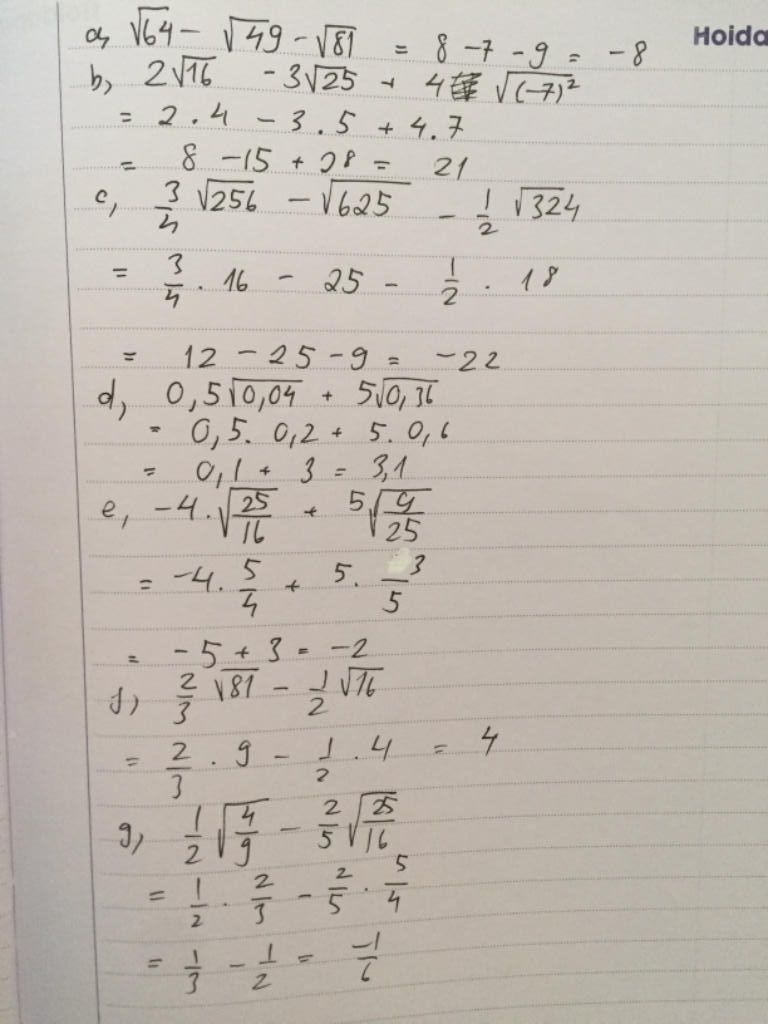 Hoida
a, √64 - √49 - √81 = 8 - 7 - 9 = -8
b, 2√16 - 3√25 + 4 √(-7)²
= 2.4 - 3.5 + 4.7
= 8 - 15 + 28 = 21
c, 3/4 √256 - √625 - 1/2 √324
= 3/4 . 16 - 25 - 1/2 . 18
= 12 - 25 - 9 = -22
d, 0,5√0,04 + 5√0,36
= 0,5. 0,2 + 5. 0,6
= 0,1 + 3 = 3,1
e, -4.√25/16 + 5√9/25
= -4. 5/4 + 5. 3/5
= -5 + 3 = -2
f, 2/3 √81 - 1/2 √16
= 2/3 . 9 - 1/2 . 4 = 4
g, 1/2 √4/9 - 2/5 √25/16
= 1/2 . 2/3 - 2/5 . 5/4
= 1/3 - 1/2 = -1/6